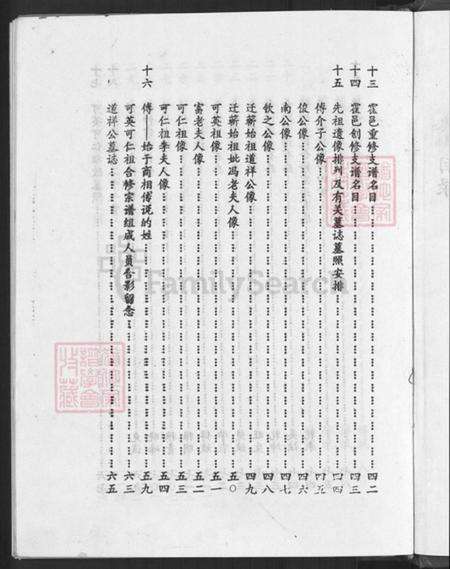 十三 霍邑重修支谱名目……四二
十四 霍邑创修支谱名目……四三
十五 先祖遗像排列及有关墓誌墓照安排……四四
傅介子公像……四五
俊公像……四六
南公像……四七
钦之公像……四八
迁蕲始祖道祥公像……四九
迁蕲始祖妣冯老夫人像……五〇
可英祖像……五一
富老夫人像……五二
可仁祖像……五三
可仁祖李夫人像……五四
十六 傅——始于商相傅说的姓……五九
可英可仁祖合修宗谱组成人员合影留念……六三
道祥公墓誌……六五
FamilySearch